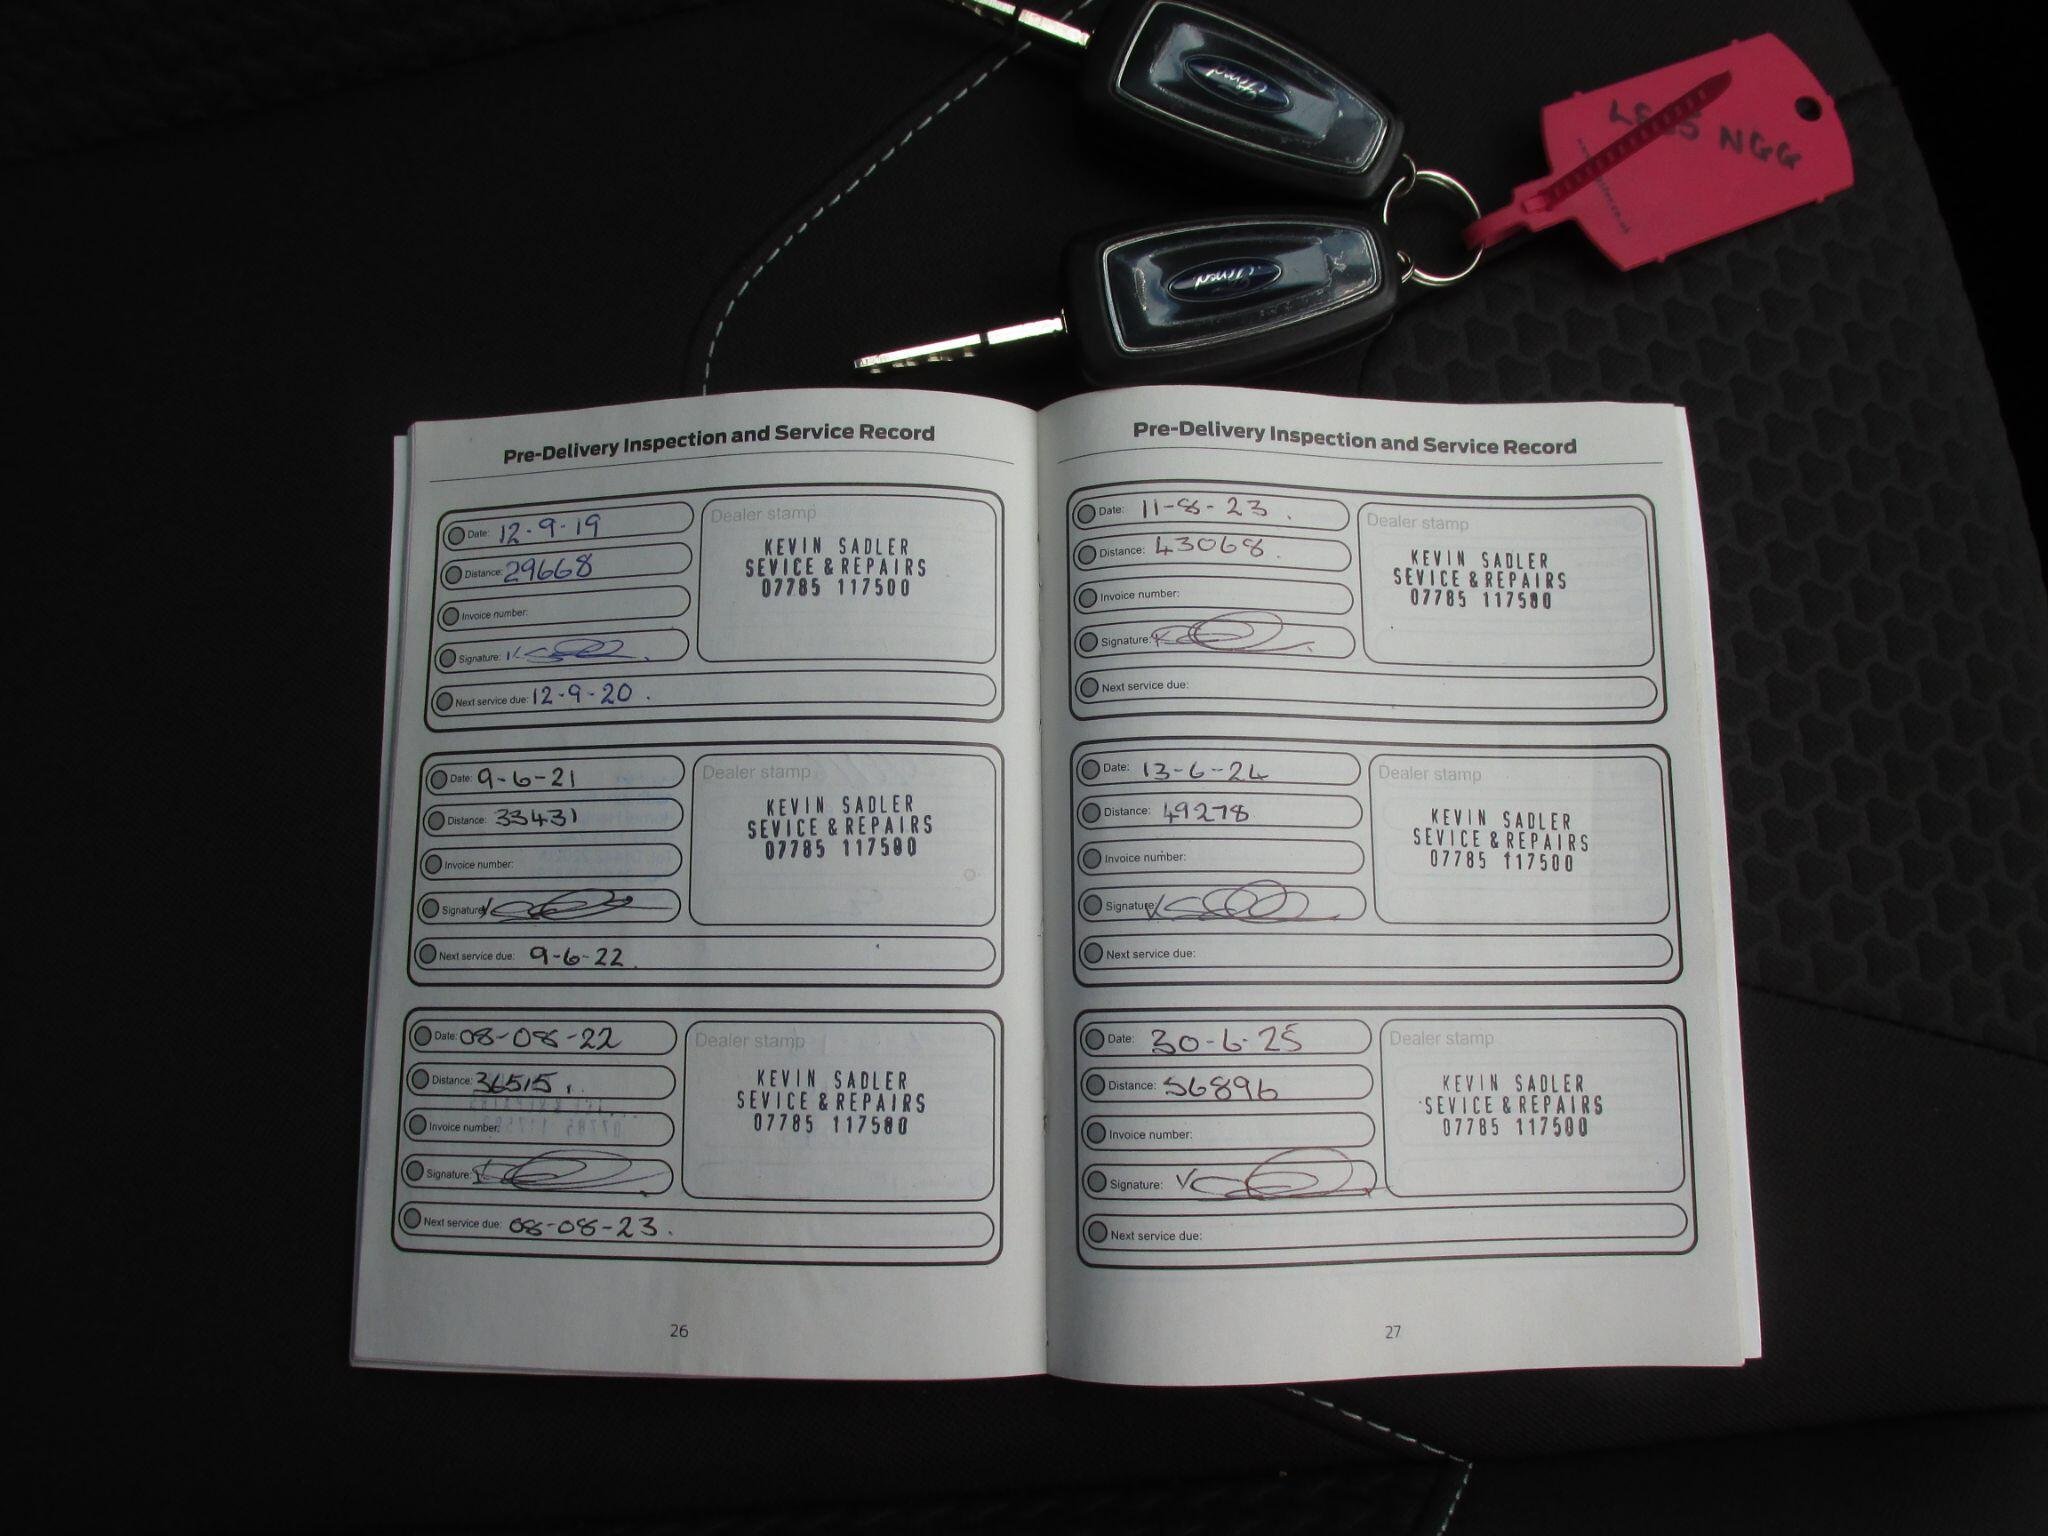 Ford
Ford
NGG
Pre-Delivery Inspection and Service Record
Date: 12-9-19
Distance: 29668
Invoice number:
Signature:
Next service due: 12-9-20.
Dealer stamp
KEVIN SADLER
SEVICE & REPAIRS
07785 117500
Date: 9-6-21
Distance: 33431
Invoice number:
Signature:
Next service due: 9-6-22.
Dealer stamp
KEVIN SADLER
SEVICE & REPAIRS
07785 117500
Date: 08-08-22
Distance: 36515.
Invoice number:
Signature:
Next service due: 08-08-23.
Dealer stamp
KEVIN SADLER
SEVICE & REPAIRS
07785 117500
26
Pre-Delivery Inspection and Service Record
Date: 11-8-23.
Distance: 43068.
Invoice number:
Signature:
Next service due:
Dealer stamp
KEVIN SADLER
SEVICE & REPAIRS
07785 117500
Date: 13-6-24
Distance: 49278
Invoice number:
Signature:
Next service due:
Dealer stamp
KEVIN SADLER
SEVICE & REPAIRS
07785 117500
Date: 30-6-25
Distance: 56896
Invoice number:
Signature:
Next service due:
Dealer stamp
KEVIN SADLER
SEVICE & REPAIRS
07785 117500
27